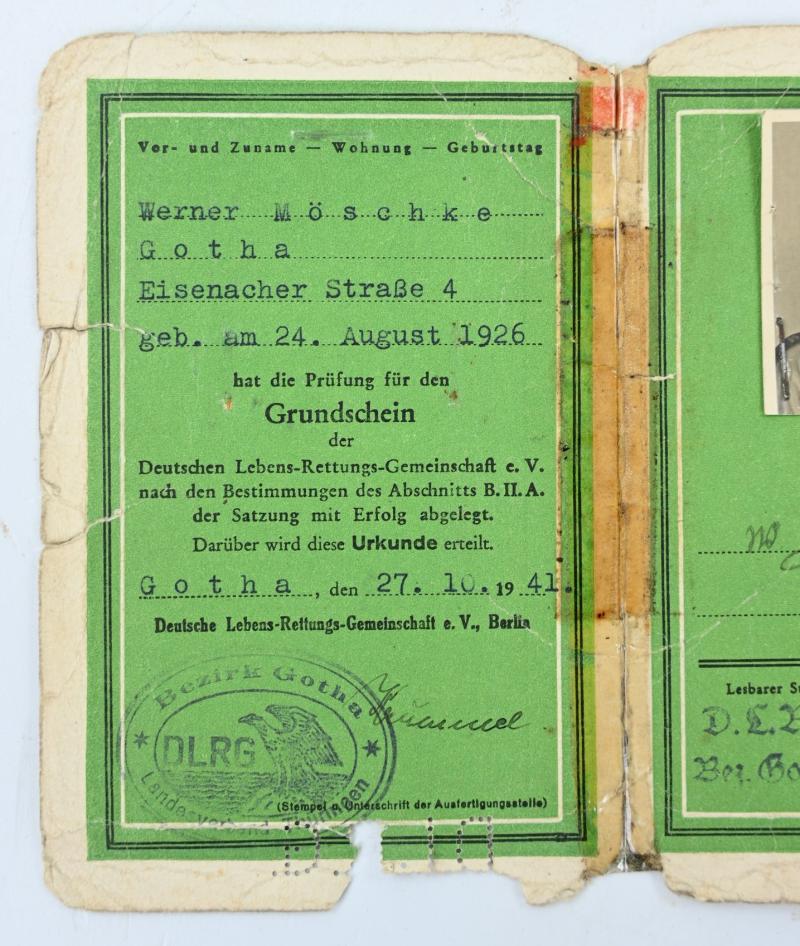 Vor- und Zuname — Wohnung — Geburtstag
Werner Möschke
Gotha
Eisenacher Straße 4
geb. am 24. August 1926
hat die Prüfung für den
Grundschein
der
Deutschen Lebens-Rettungs-Gemeinschaft e. V.
nach den Bestimmungen des Abschnitts B. II. A.
der Satzung mit Erfolg abgelegt.
Darüber wird diese Urkunde erteilt.
Gotha, den 27. 10. 19 41.
Deutsche Lebens-Rettungs-Gemeinschaft e. V., Berlin
Bezirk Gotha
DLRG
Landesverband Thüringen
(Stempel u. Unterschrift der Ausfertigungsstelle)
Lesbarer
D. L.
Bez.